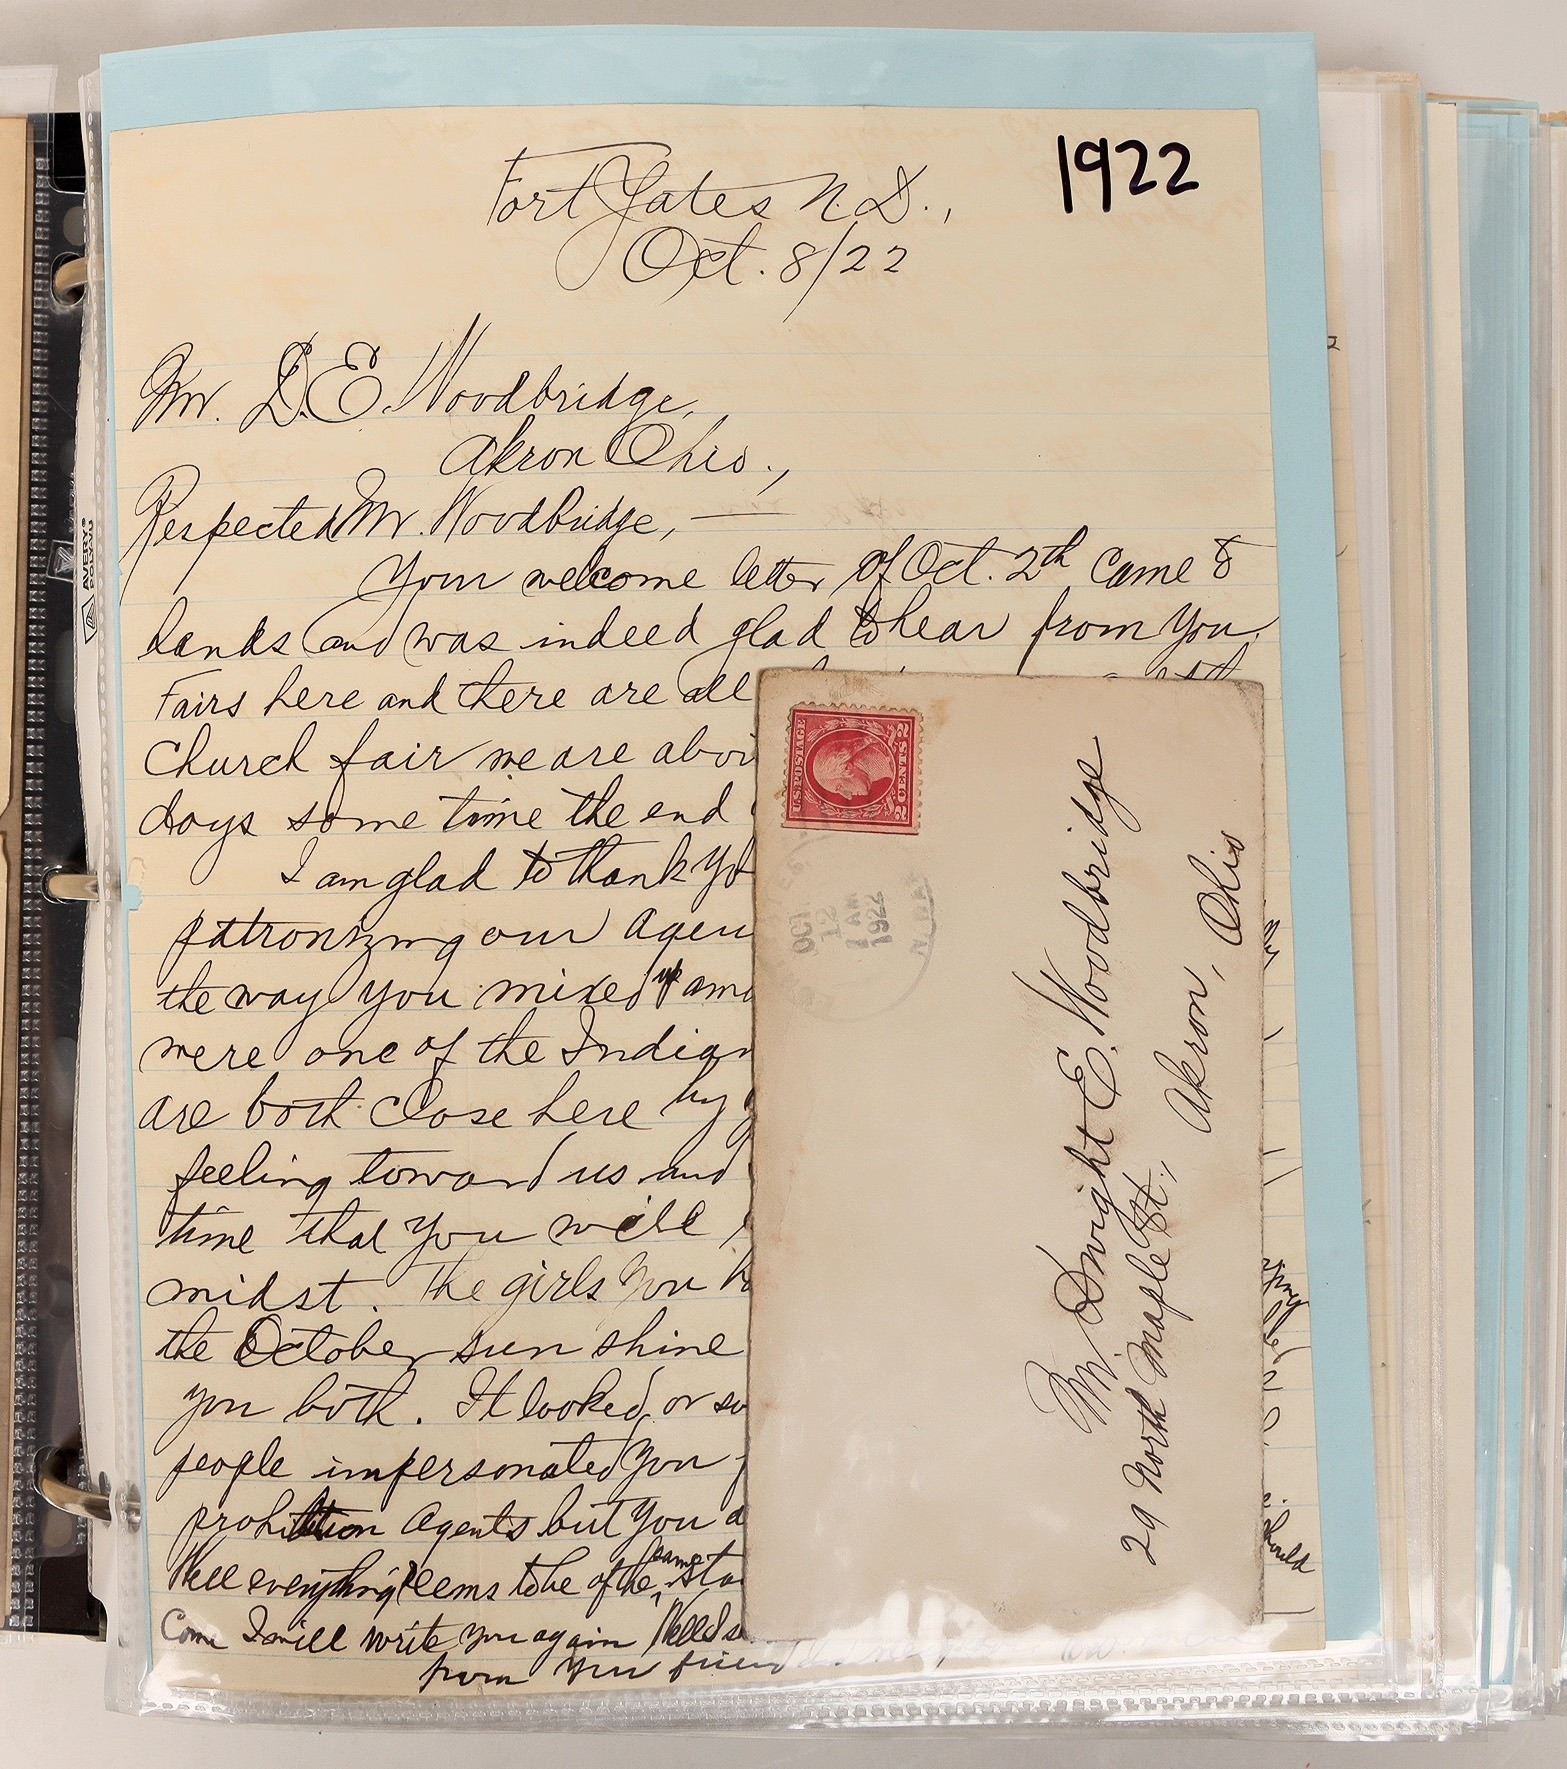 1922
Fort Yates N.D.,
Oct. 8/22
Mr. D.E. Woodbridge,
Akron Ohio.,
Respected Mr. Woodbridge, —
Your welcome letter of Oct. 2th came to
hands and was indeed glad to hear from you.
Fairs here and there are all
church fair we are
days some time the end
I am glad to thank
patronizing our
the way you mixed up
were one of the
are both close here by
feeling toward us and
time that you will
midst. The girls you
the October sun shine
you both. It looked, or
people impersonated you
prohibition agents but you
Well everything seems to be of the same
Come I will write you again
from your friend
U.S. POSTAGE
2 CENTS 2
OCT
12
1 AM
1922
N. DAK
Mr. Dwight E. Woodbridge
29 North Maple St.,
Akron, Ohio
should
AVERY